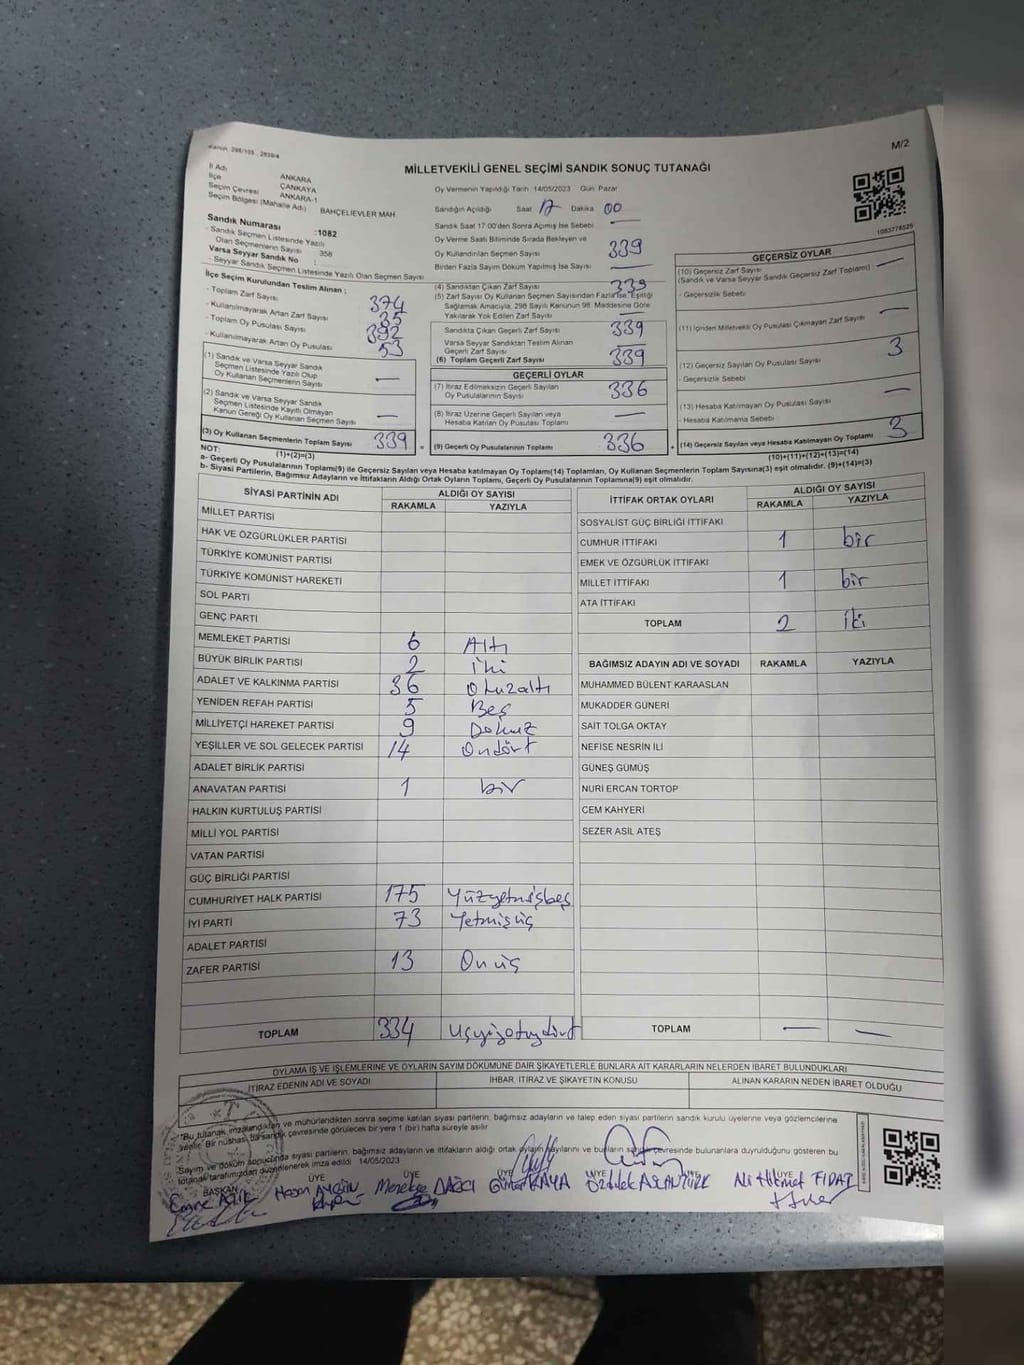 M/2
MİLLETVEKİLİ GENEL SEÇİMİ SANDIK SONUÇ TUTANAĞI
İl Adı ANKARA
İlçe ÇANKAYA
Seçim Çevresi ANKARA-1
Seçim Bölgesi (Mahalle Adı) BAHÇELİEVLER MAH.
Oy Vermenin Yapıldığı Tarih 14/05/2023 Gün Pazar
Sandığın Açıldığı Saat 17 Dakika 00
Sandık Saat 17:00'den Sonra Açılmış İse Sebebi
Oy Verme Saati Bitiminde Sırada Bekleyen ve
Oy Kullandırılan Seçmen Sayısı 339
Birden Fazla Sayım Döküm Yapılmış İse Sayısı —
Sandık Numarası :1082
- Sandık Seçmen Listesinde Yazılı
Olan Seçmenlerin Sayısı 358
Varsa Seyyar Sandık No :
- Seyyar Sandık Seçmen Listesinde Yazılı Olan Seçmen Sayısı
İlçe Seçim Kurulundan Teslim Alınan ;
- Toplam Zarf Sayısı 374
- Kullanılmayarak Artan Zarf Sayısı 35
- Toplam Oy Pusulası Sayısı 392
- Kullanılmayarak Artan Oy Pusulası 53
(1) Sandık ve Varsa Seyyar Sandık
Seçmen Listesinde Yazılı Olup
Oy Kullanan Seçmenlerin Sayısı —
(2) Sandık ve Varsa Seyyar Sandık
Seçmen Listesinde Kayıtlı Olmayan
Kanun Gereği Oy Kullanan Seçmen Sayısı —
(3) Oy Kullanan Seçmenlerin Toplam Sayısı 339 =
(1)+(2)=(3)
(4) Sandıktan Çıkan Zarf Sayısı 339
(5) Zarf Sayısı Oy Kullanan Seçmen Sayısından Fazla ise, Eşitliği
Sağlamak Amacıyla, 298 Sayılı Kanunun 98. Maddesine Göre
Yakılarak Yok Edilen Zarf Sayısı —
Sandıkta Çıkan Geçerli Zarf Sayısı 339
Varsa Seyyar Sandıktan Teslim Alınan
Geçerli Zarf Sayısı
(6) Toplam Geçerli Zarf Sayısı 339
GEÇERLİ OYLAR
(7) İtiraz Edilmeksizin Geçerli Sayılan
Oy Pusulalarının Sayısı 336
(8) İtiraz Üzerine Geçerli Sayılan veya
Hesaba Katılan Oy Pusulası Toplamı —
(9) Geçerli Oy Pusulalarının Toplamı 336 +
1083778525
GEÇERSİZ OYLAR
(10) Geçersiz Zarf Sayısı
(Sandık ve Varsa Seyyar Sandık Geçersiz Zarf Toplamı) —
- Geçersizlik Sebebi
(11) İçinden Milletvekili Oy Pusulası Çıkmayan Zarf Sayısı —
(12) Geçersiz Sayılan Oy Pusulası Sayısı 3
- Geçersizlik Sebebi
(13) Hesaba Katılmayan Oy Pusulası Sayısı —
- Hesaba Katılmama Sebebi
(14) Geçersiz Sayılan veya Hesaba Katılmayan Oy Toplamı 3
(10)+(11)+(12)+(13)=(14)
NOT:
a- Geçerli Oy Pusulalarının Toplamı(9) ile Geçersiz Sayılan veya Hesaba katılmayan Oy Toplamı(14) Toplamları, Oy Kullanan Seçmenlerin Toplam Sayısına(3) eşit olmalıdır. (9)+(14)=(3)
b- Siyasi Partilerin, Bağımsız Adayların ve İttifakların Aldığı Ortak Oyların Toplamı, Geçerli Oy Pusulalarının Toplamına(9) eşit olmalıdır.
SİYASİ PARTİNİN ADI ALDIĞI OY SAYISI
RAKAMLA YAZIYLA
MİLLET PARTİSİ
HAK VE ÖZGÜRLÜKLER PARTİSİ
TÜRKİYE KOMÜNİST PARTİSİ
TÜRKİYE KOMÜNİST HAREKETİ
SOL PARTİ
GENÇ PARTİ
MEMLEKET PARTİSİ 6 Altı
BÜYÜK BİRLİK PARTİSİ 2 iki
ADALET VE KALKINMA PARTİSİ 36 Otuzaltı
YENİDEN REFAH PARTİSİ 5 Beş
MİLLİYETÇİ HAREKET PARTİSİ 9 Dokuz
YEŞİLLER VE SOL GELECEK PARTİSİ 14 Ondört
ADALET BİRLİK PARTİSİ
ANAVATAN PARTİSİ 1 bir
HALKIN KURTULUŞ PARTİSİ
MİLLİ YOL PARTİSİ
VATAN PARTİSİ
GÜÇ BİRLİĞİ PARTİSİ
CUMHURİYET HALK PARTİSİ 175 Yüzyetmişbeş
İYİ PARTİ 73 Yetmişüç
ADALET PARTİSİ
ZAFER PARTİSİ 13 Onüç
TOPLAM 334
İTTİFAK ORTAK OYLARI ALDIĞI OY SAYISI
RAKAMLA YAZIYLA
SOSYALİST GÜÇ BİRLİĞİ İTTİFAKI
CUMHUR İTTİFAKI 1 bir
EMEK VE ÖZGÜRLÜK İTTİFAKI
MİLLET İTTİFAKI 1 bir
ATA İTTİFAKI
TOPLAM 2 iki
BAĞIMSIZ ADAYIN ADI VE SOYADI RAKAMLA YAZIYLA
MUHAMMED BÜLENT KARAASLAN
MUKADDER GÜNERİ
SAİT TOLGA OKTAY
NEFİSE NESRİN İLİ
GÜNEŞ GÜMÜŞ
NURİ ERCAN TORTOP
CEM KAHYERİ
SEZER ASİL ATEŞ
TOPLAM — —
OYLAMA İŞ VE İŞLEMLERİNE VE OYLARIN SAYIM DÖKÜMÜNE DAİR ŞİKAYETLERLE BUNLARA AİT KARARLARIN NELERDEN İBARET BULUNDUKLARI
İTİRAZ EDENİN ADI VE SOYADI İHBAR, İTİRAZ VE ŞİKAYETİN KONUSU ALINAN KARARIN NEDEN İBARET OLDUĞU
"Bu tutanak imzalandıktan ve mühürlendikten sonra seçime katılan siyasi partilerin, bağımsız adayların ve talep eden siyasi partilerin sandık kurulu üyelerine veya gözlemcilerine
verilir. Bir nüshası da sandık çevresinde görülecek bir yere 1 (bir) hafta süreyle asılır
Sayım ve döküm sonucunda siyasi partilerin, bağımsız adayların ve ittifakların aldığı ortak oyların sayılarını ve bunların sandık çevresinde bulunanlara duyrulduğunu gösteren bu
tutanak tarafımızdan düzenlenerek imza edildi. 14/05/2023
BAŞKAN ÜYE ÜYE ÜYE ÜYE ÜYE
Hasan AYGÜN Menekşe DAĞCI KAYA ASLANTÜRK Ali Hikmet FIDAT